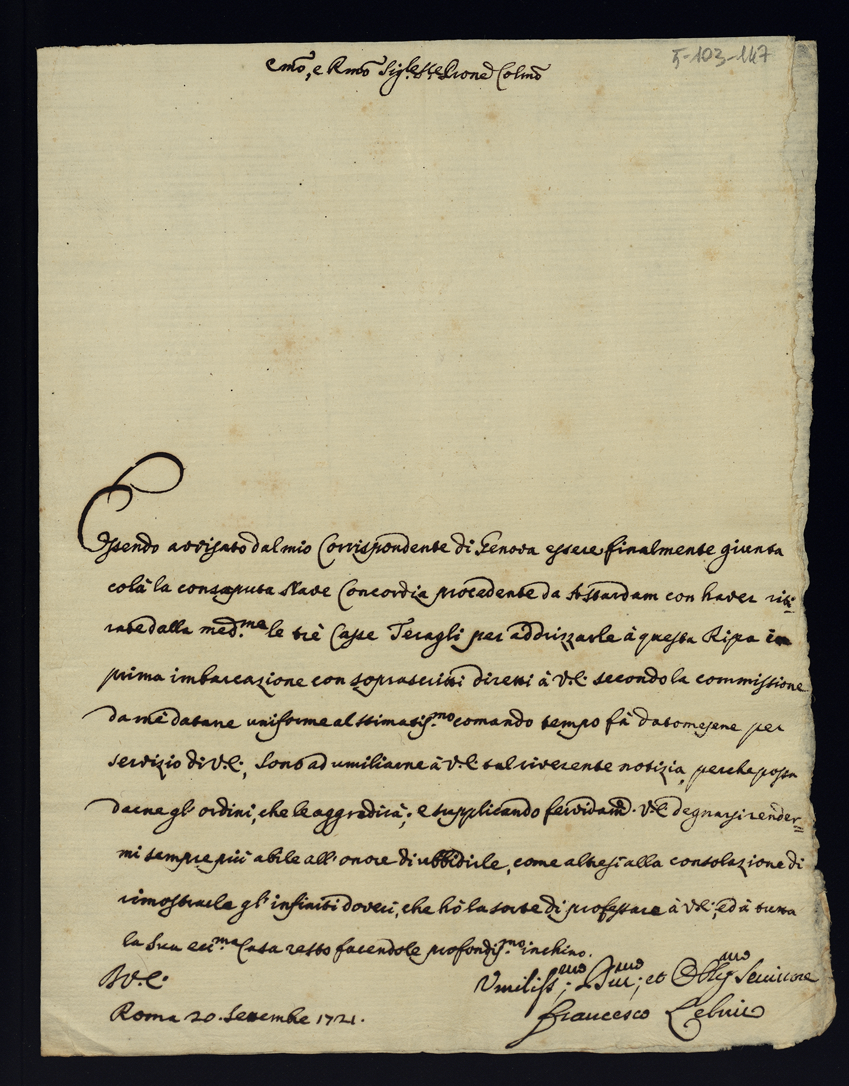 5-103-147
Emo, e Rmo Sig.re Sig.re Prone Colmo
Essendo avvisato dal mio Corrispondente di Genova essere finalmente giunta
colà la consaputa Nave Concordia procedente da Astardam con haver riti=
rate dalla med.ma le trè Casse Teragli per addrizzarle à questa Ripa in
prima imbarcazione con soprascritti diretti à V.E. secondo la commissione
da mè datane uniforme al stimatis.mo comando tempo fà datomesene per
servizio di V.E., sono ad umiliarne à V.E. tal riverente notizia, perche possa
darne gl' ordini, che le aggradirà; e supplicando fervidam. V.E. degnarsi render=
mi sempre più abile all' onore di ubbidirle, come altresi alla consolazione di
rimostrarle gl' infiniti doveri, che hò la sorte di professare à V.E., ed à tutta
la Sua ecc.ma Casa resto facendole profondis.mo inchino.
D V.E.
Roma 20. Settembre 1721.
Umiliss.mo; Dev.mo; et Obblig.mo Servitore
Francesco